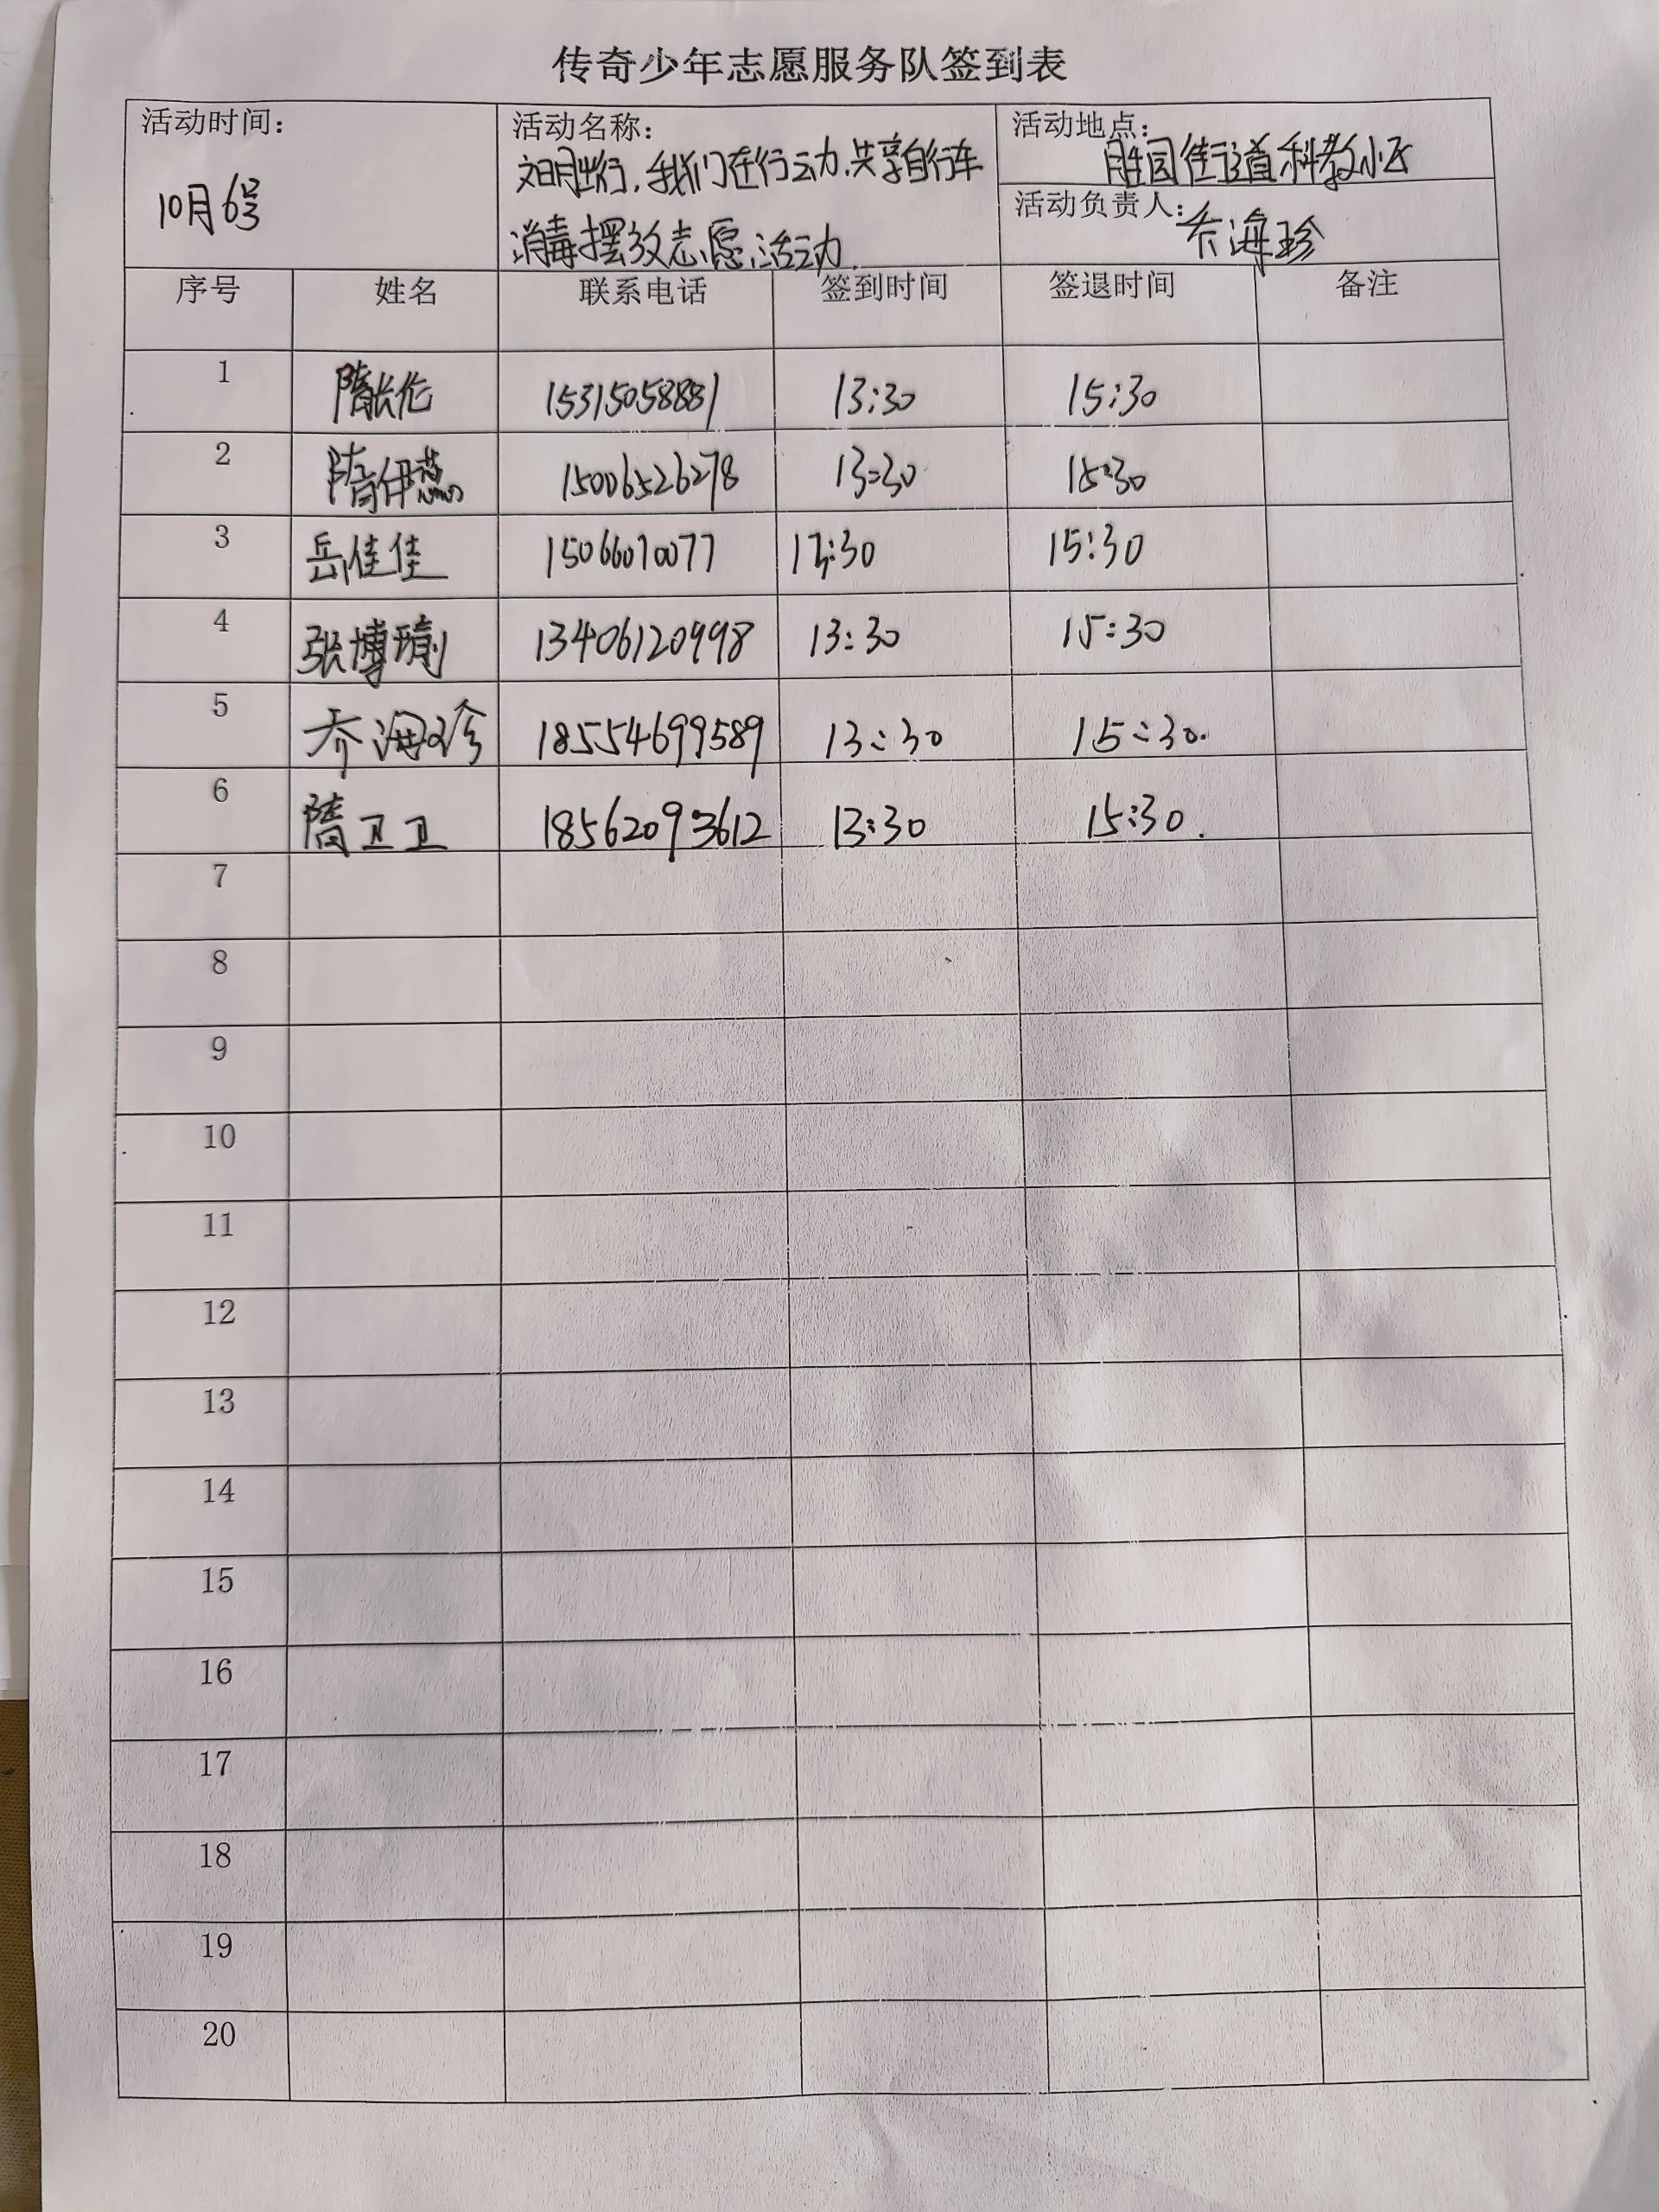 传奇少年志愿服务队签到表
活动时间：
10月6号
活动名称：
文明出行，我们在行动，共享自行车
消毒摆放志愿活动
活动地点：
胜园街道科教小区
活动负责人：
乔海珍
序号 姓名 联系电话 签到时间 签退时间 备注
1 隋长伦 15315058881 13:30 15:30
2 隋伊蕊 15006526278 13:30 15:30
3 岳佳佳 15066070077 13:30 15:30
4 张博 13406120998 13:30 15:30
5 乔海珍 18554699589 13:30 15:30.
6 隋卫卫 18562093612 13:30 15:30.
7
8
9
10
11
12
13
14
15
16
17
18
19
20